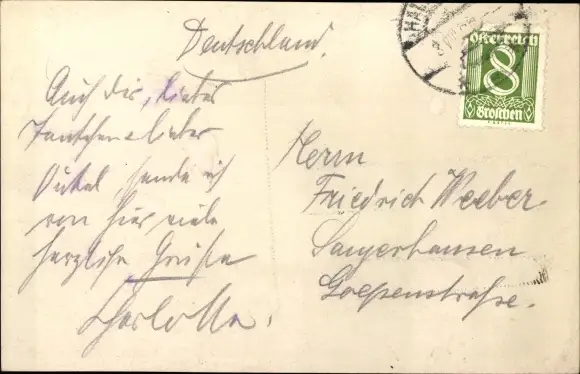 Deutschland.
Auch dir, liebes
Tantchen u. lieber
Onkel, sende ich
von hier viele
herzliche Grüße
Charlotte.
HA
Österreich
8
Groschen
Herrn
Friedrich Weeber.
Sangerhausen
Goepenstraße.